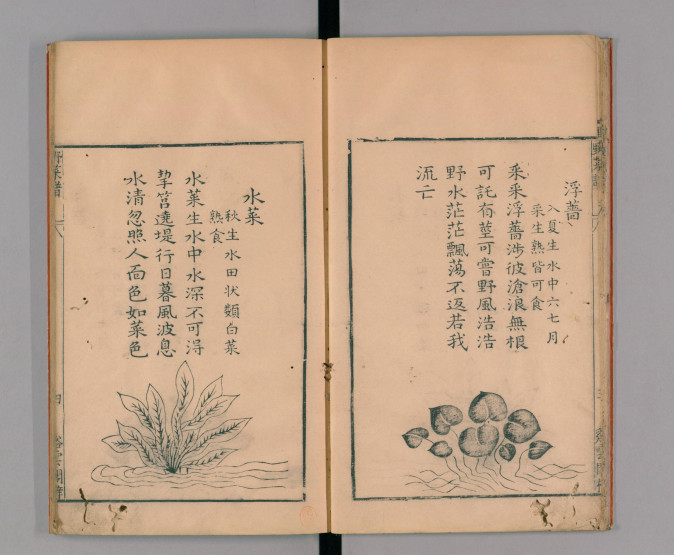 浮薔
入夏生水中六七月
采生熟皆可食
采采浮薔涉彼滄浪無根
可託有莖可嘗野風浩浩
野水茫茫飄蕩不返若我
流亡
水菜
秋生水田状類白菜
熟食
水菜生水中水深不可得
挈筥遶堤行日暮風波息
水清忽照人面色如菜色
野菜譜
四